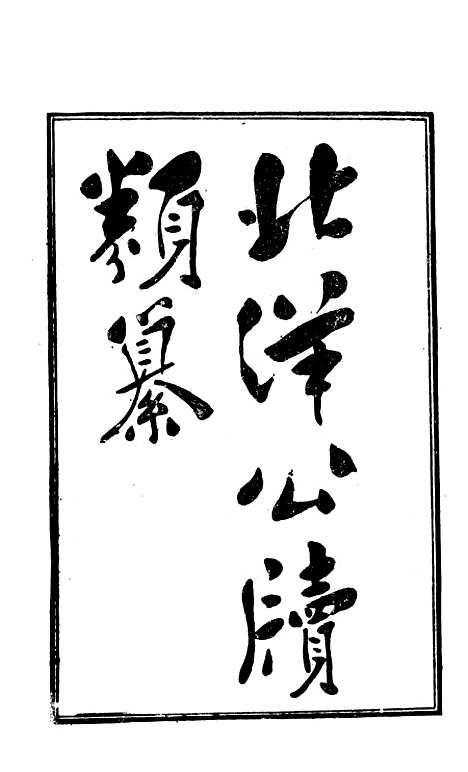 北洋公牘
類纂